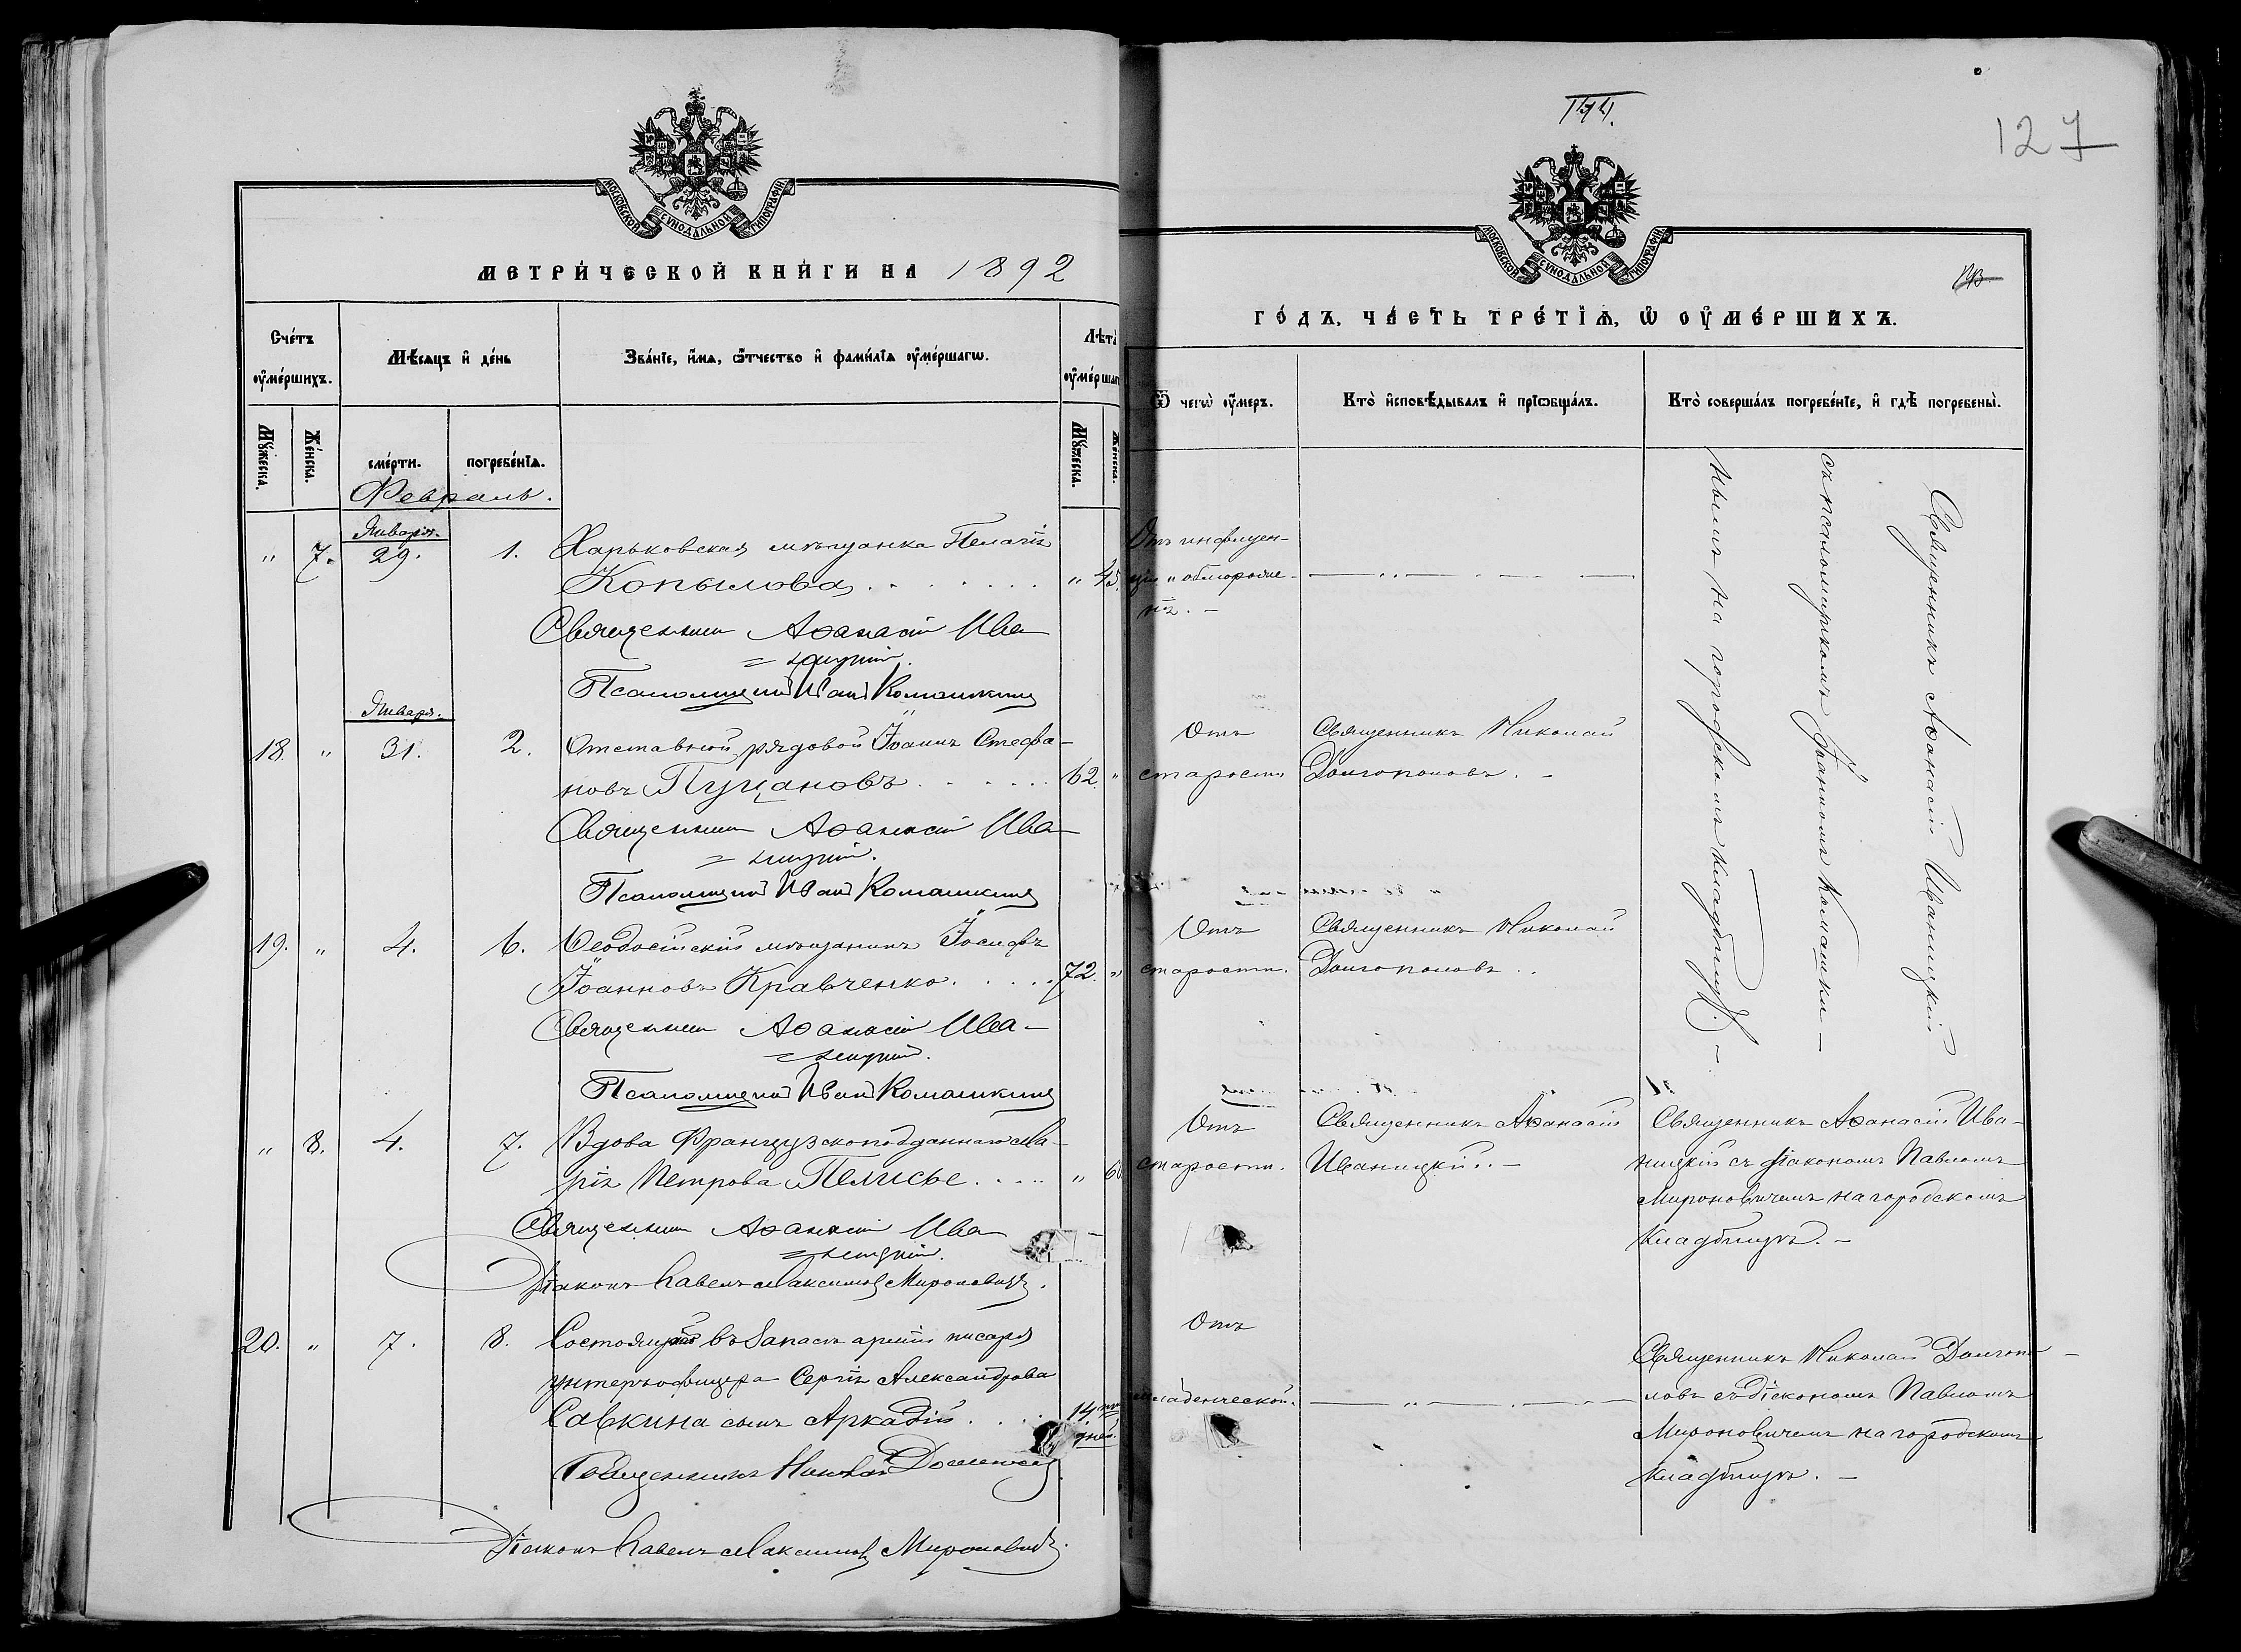 МОСКОВСКОЙ СУНОДАЛЬНОЙ ТИПОГРАФІИ
МЕТРИ́ЧЕСКОЙ КНИ́ГИ НА 1892
Сче́тъ ѹ҆ме́ршихъ.
Мѣ́сяцъ и҆ де́нь
Зва́нїе, и҆́мѧ, ѻ҆́тчество и҆ фами́лїѧ ѹ҆ме́ршагѡ.
Лѣ́та
Мꙋ́жеска.
Же́нска.
сме́рти.
погребе́нїѧ.
Мꙋ́жеска.
Же́нска.
Февраль.
Января.
" 7. 29. 1. Харьковская мѣщанка Пелагія
Копылова " 45.
Священникъ Аѳанасій Ива
=ницкій.
Псаломщикъ Иванъ Комашкинъ
Января.
18. " 31. 2. Отставной рядовой Іоаннъ Стефа-
новъ Пуцановъ 62. "
Священникъ Аѳанасій Ива-
=ницкій.
Псаломщикъ Иванъ Комашкинъ
19. " 4. 6. Ѳеодосійскій мѣщанинъ Іосифъ
Іоанновъ Кравченко 72. "
Священникъ Аѳанасій Ива-
=ницкій.
Псаломщикъ Иванъ Комашкинъ
" 8. 4. 7. Вдова Французскоподданнаго Ма-
рія Петрова Пелисье " 60
Священникъ Аѳанасій Ива
=ницкій.
Діаконъ Павелъ Максимовъ Мироновичъ.
20. " 7. 8. Состоящаго въ Запасѣ арміи писаря
унтеръ-офицера Сергія Александрова
Савкина сынъ Аркадій 14.
дней.
Священникъ Николай
Діаконъ Павелъ Максимовъ Мироновичъ.
127
МОСКОВСКОЙ СУНОДАЛЬНОЙ ТИПОГРАФІИ
ГО́ДЪ, ЧА́СТЬ ТРЕ́ТЇѦ, Ѡ҆ ОУ҆МЕ́РШИХЪ.
Ѿ чегѡ̀ ѹ҆́меръ.
Кто̀ и҆сповѣ́дывалъ и҆ прїѡбща́лъ.
Кто̀ соверша́лъ погребе́нїе, и҆ гдѣ̀ погребены̀.
Отъ инфлуен-
ціи и обмороже-
нія. -
Отъ
старости
Священникъ Николай
Долгополовъ. -
Отъ
старости.
Священникъ Николай
Долгополовъ.
Священникъ Аѳанасій Иваницкій
съ псаломщикомъ Іоанномъ Комашки-
нымъ на городскомъ кладбищѣ. -
Отъ
старости.
Священникъ Аѳанасій
Иваницкій. -
Священникъ Аѳанасій Ива-
ницкій съ діакономъ Павломъ
Мироновичемъ на городскомъ
кладбищѣ. -
Отъ
младенческой.
Священникъ Николай Долгопо-
ловъ съ діакономъ Павломъ
Мироновичемъ на городскомъ
кладбищѣ. -